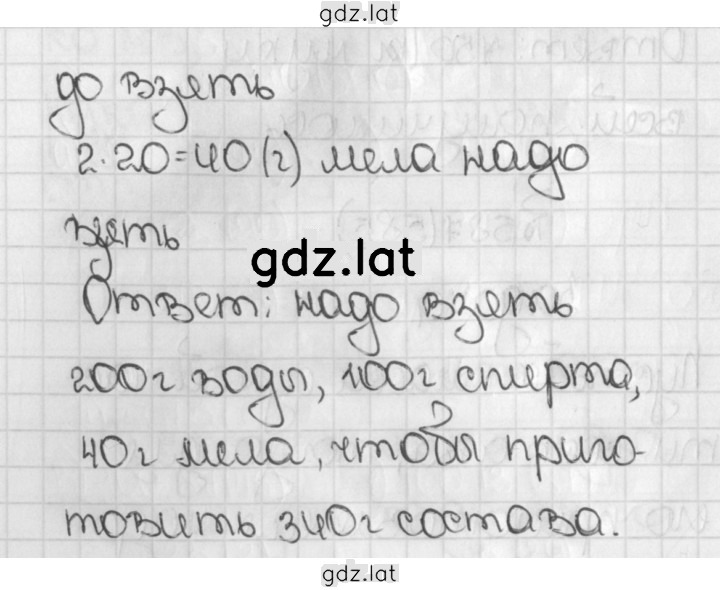 gdz.lat
до взять
2·20=40(г) мела надо
взять
gdz.lat
Ответ: надо взять
200г воды, 100г спирта,
40г мела, чтобы приго-
товить 340г состава.
gdz.lat